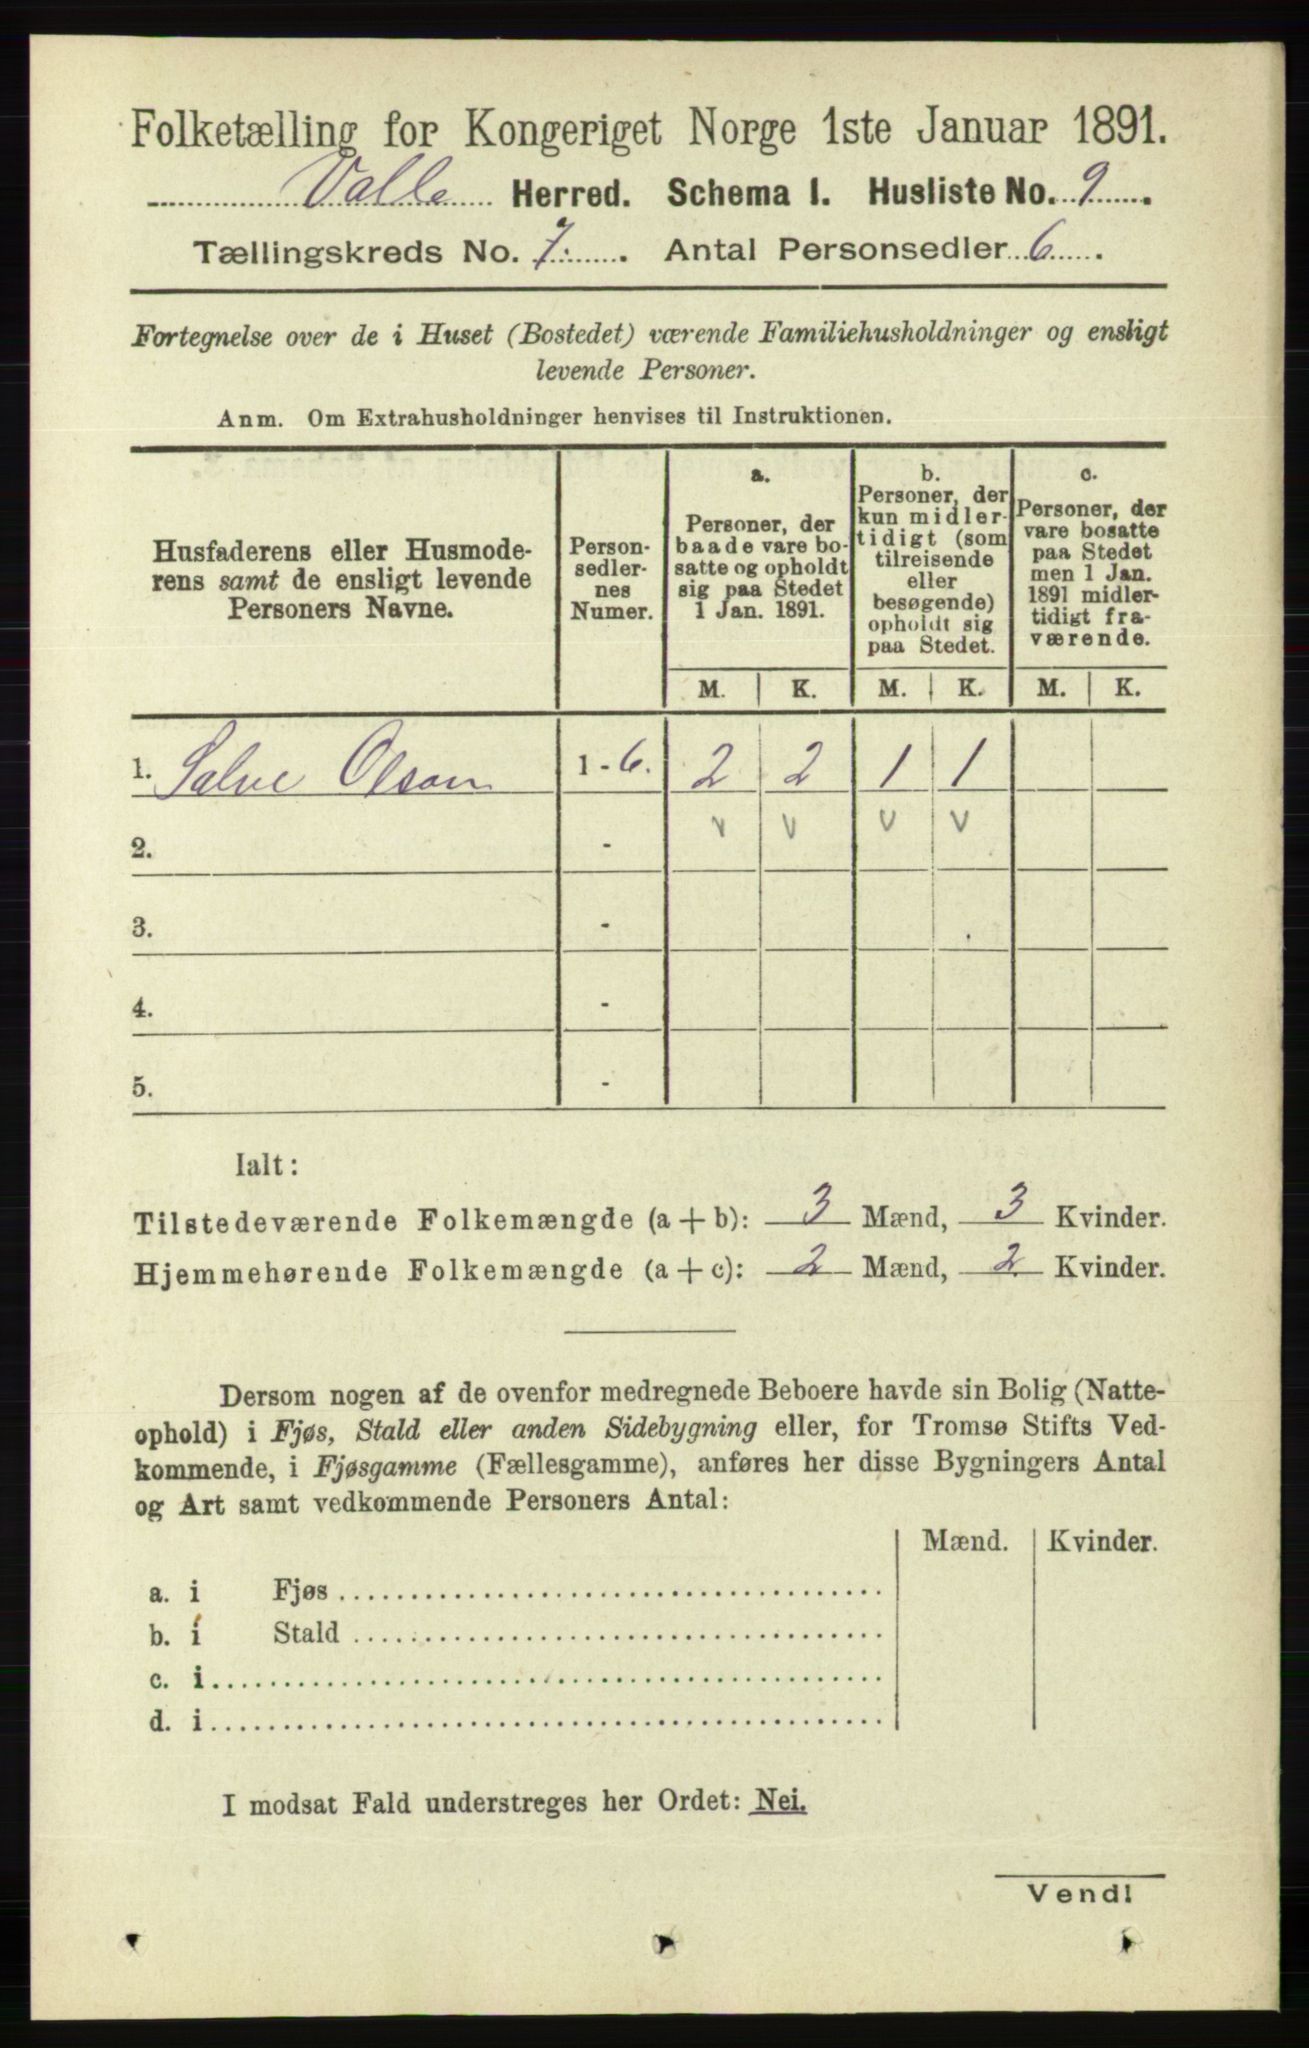 Folketælling for Kongeriget Norge 1ste Januar 1891.
Valle Herred. Schema I. Husliste No. 9.
Tællingskreds No. 7. Antal Personsedler 6.
Fortegnelse over de i Huset (Bostedet) værende Familiehusholdninger og ensligt
levende Personer.
Anm. Om Extrahusholdninger henvises til Instruktionen.
Husfaderens eller Husmode-
rens samt de ensligt levende
Personers Navne.
Person-
sedler-
nes
Numer.
a.
Personer, der
baade vare bo-
satte og opholdt
sig paa Stedet
1 Jan. 1891.
b.
Personer, der
kun midler-
tidigt (som
tilreisende
eller
besøgende)
opholdt sig
paa Stedet.
c.
Personer, der
vare bosatte
paa Stedet
men 1 Jan.
1891 midler-
tidigt fra-
værende.
M. K. M. K. M. K.
1. Salve Olson 1 - 6. 2 2 1 1
2. - v v v v
3. -
4. -
5. -
Ialt:
Tilstedeværende Folkemængde (a + b): 3 Mænd, 3 Kvinder.
Hjemmehørende Folkemængde (a + c): 2 Mænd, 2 Kvinder.
Dersom nogen af de ovenfor medregnede Beboere havde sin Bolig (Natte-
ophold) i Fjøs, Stald eller anden Sidebygning eller, for Tromsø Stifts Ved-
kommende, i Fjøsgamme (Fællesgamme), anføres her disse Bygningers Antal
og Art samt vedkommende Personers Antal:
Mænd. Kvinder.
a. i Fjøs
b. i Stald
c. i
d. i
I modsat Fald understreges her Ordet: Nei.
Vend!